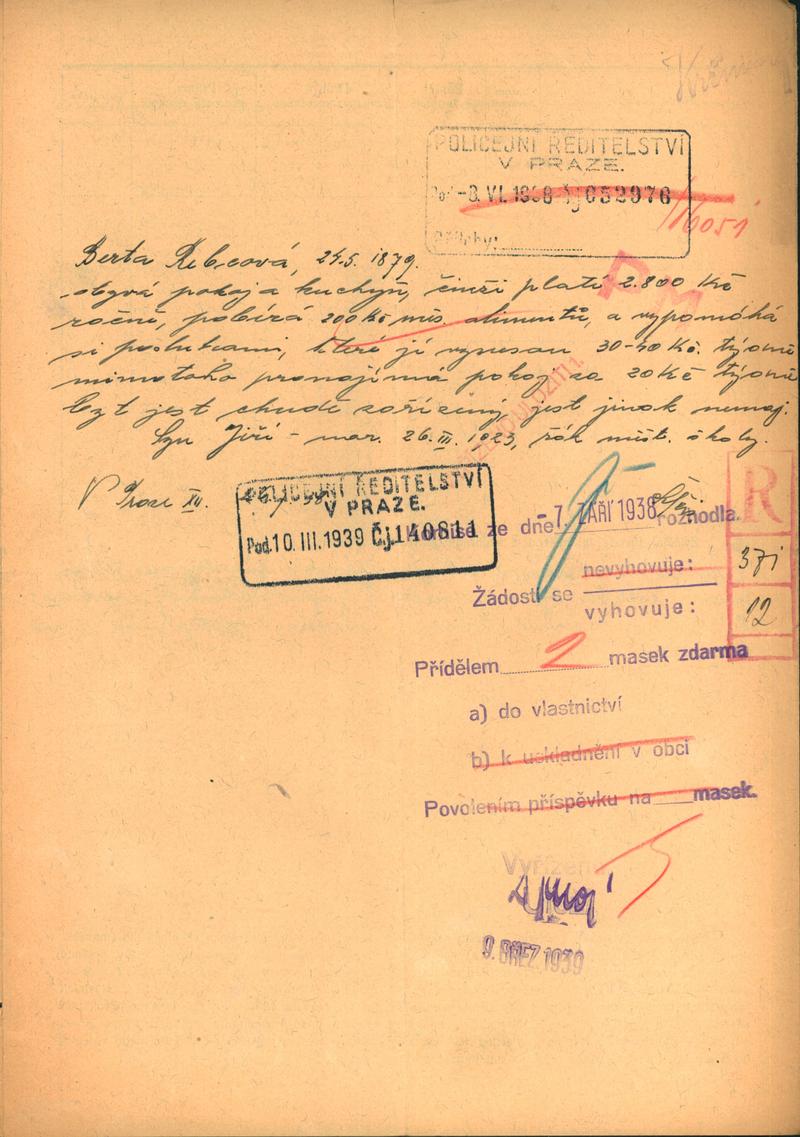 POLICEJNÍ ŘEDITELSTVÍ
V PRAZE.
Pod. -3. VI. 1938 čj 052976
Přílohy:
16051
PM
Berta 24.5. 1879.
obývá pokoj a kuchyň, činži platí 2.800 Kč
ročně, pobírá 200 Kč měs. alimentů, a vypomáhá
si posluhami, které jí vynesou 30-40 Kč. týdně
mimotoho pronajímá pokoj za 20 Kč týdně
byt jest chudě zařízený, jest jinak nemaj.
Syn Jiří - nar. 26. III. 1923, žák měšť. školy.
V Praze XII.
POLICEJNÍ ŘEDITELSTVÍ
V PRAZE.
Pod. 10. III. 1939 Čj 140811
Komise ze dne -7. ZÁŘÍ 1938 rozhodla.
R
371
12
Žádosti se nevyhovuje:
vyhovuje:
Přídělem 2 masek zdarma
a) do vlastnictví
b) k uskladnění v obci
Povolením příspěvku na masek.
Vyřízeno
9. BŘEZ. 1939